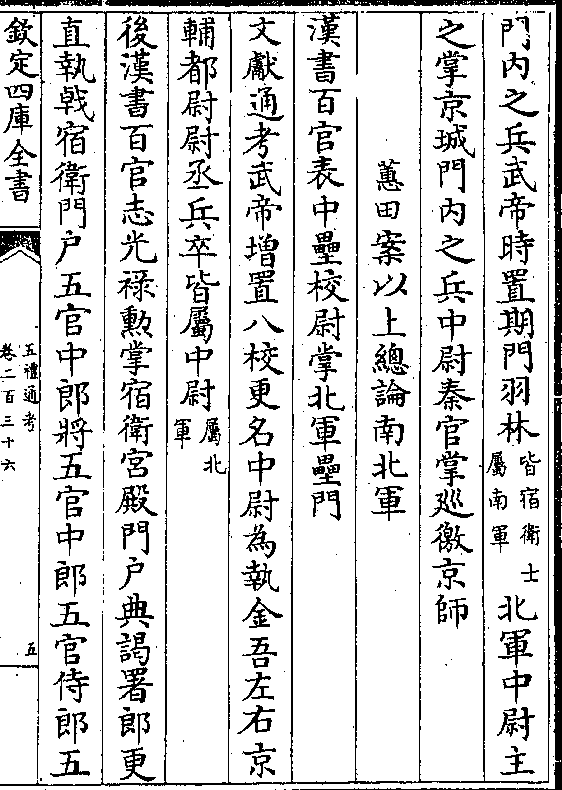 門内之兵武帝時置期門羽林皆宿衛士屬南軍北軍中尉主
之掌京城門内之兵中尉秦官掌廵徼京師
蕙田案以上總論南北軍
漢書百官表中壘校尉掌北軍壘門
文獻通考武帝増置八校更名中尉為執金吾左右京
輔都尉尉丞兵卒皆屬中尉屬北軍
後漢書百官志光禄勲掌宿衛宫殿門户典謁署郎更
直執㦸宿衛門户五官中郎將五官中郎五官侍郎五
欽定四庫全書
五禮通考
卷二百三十六
五